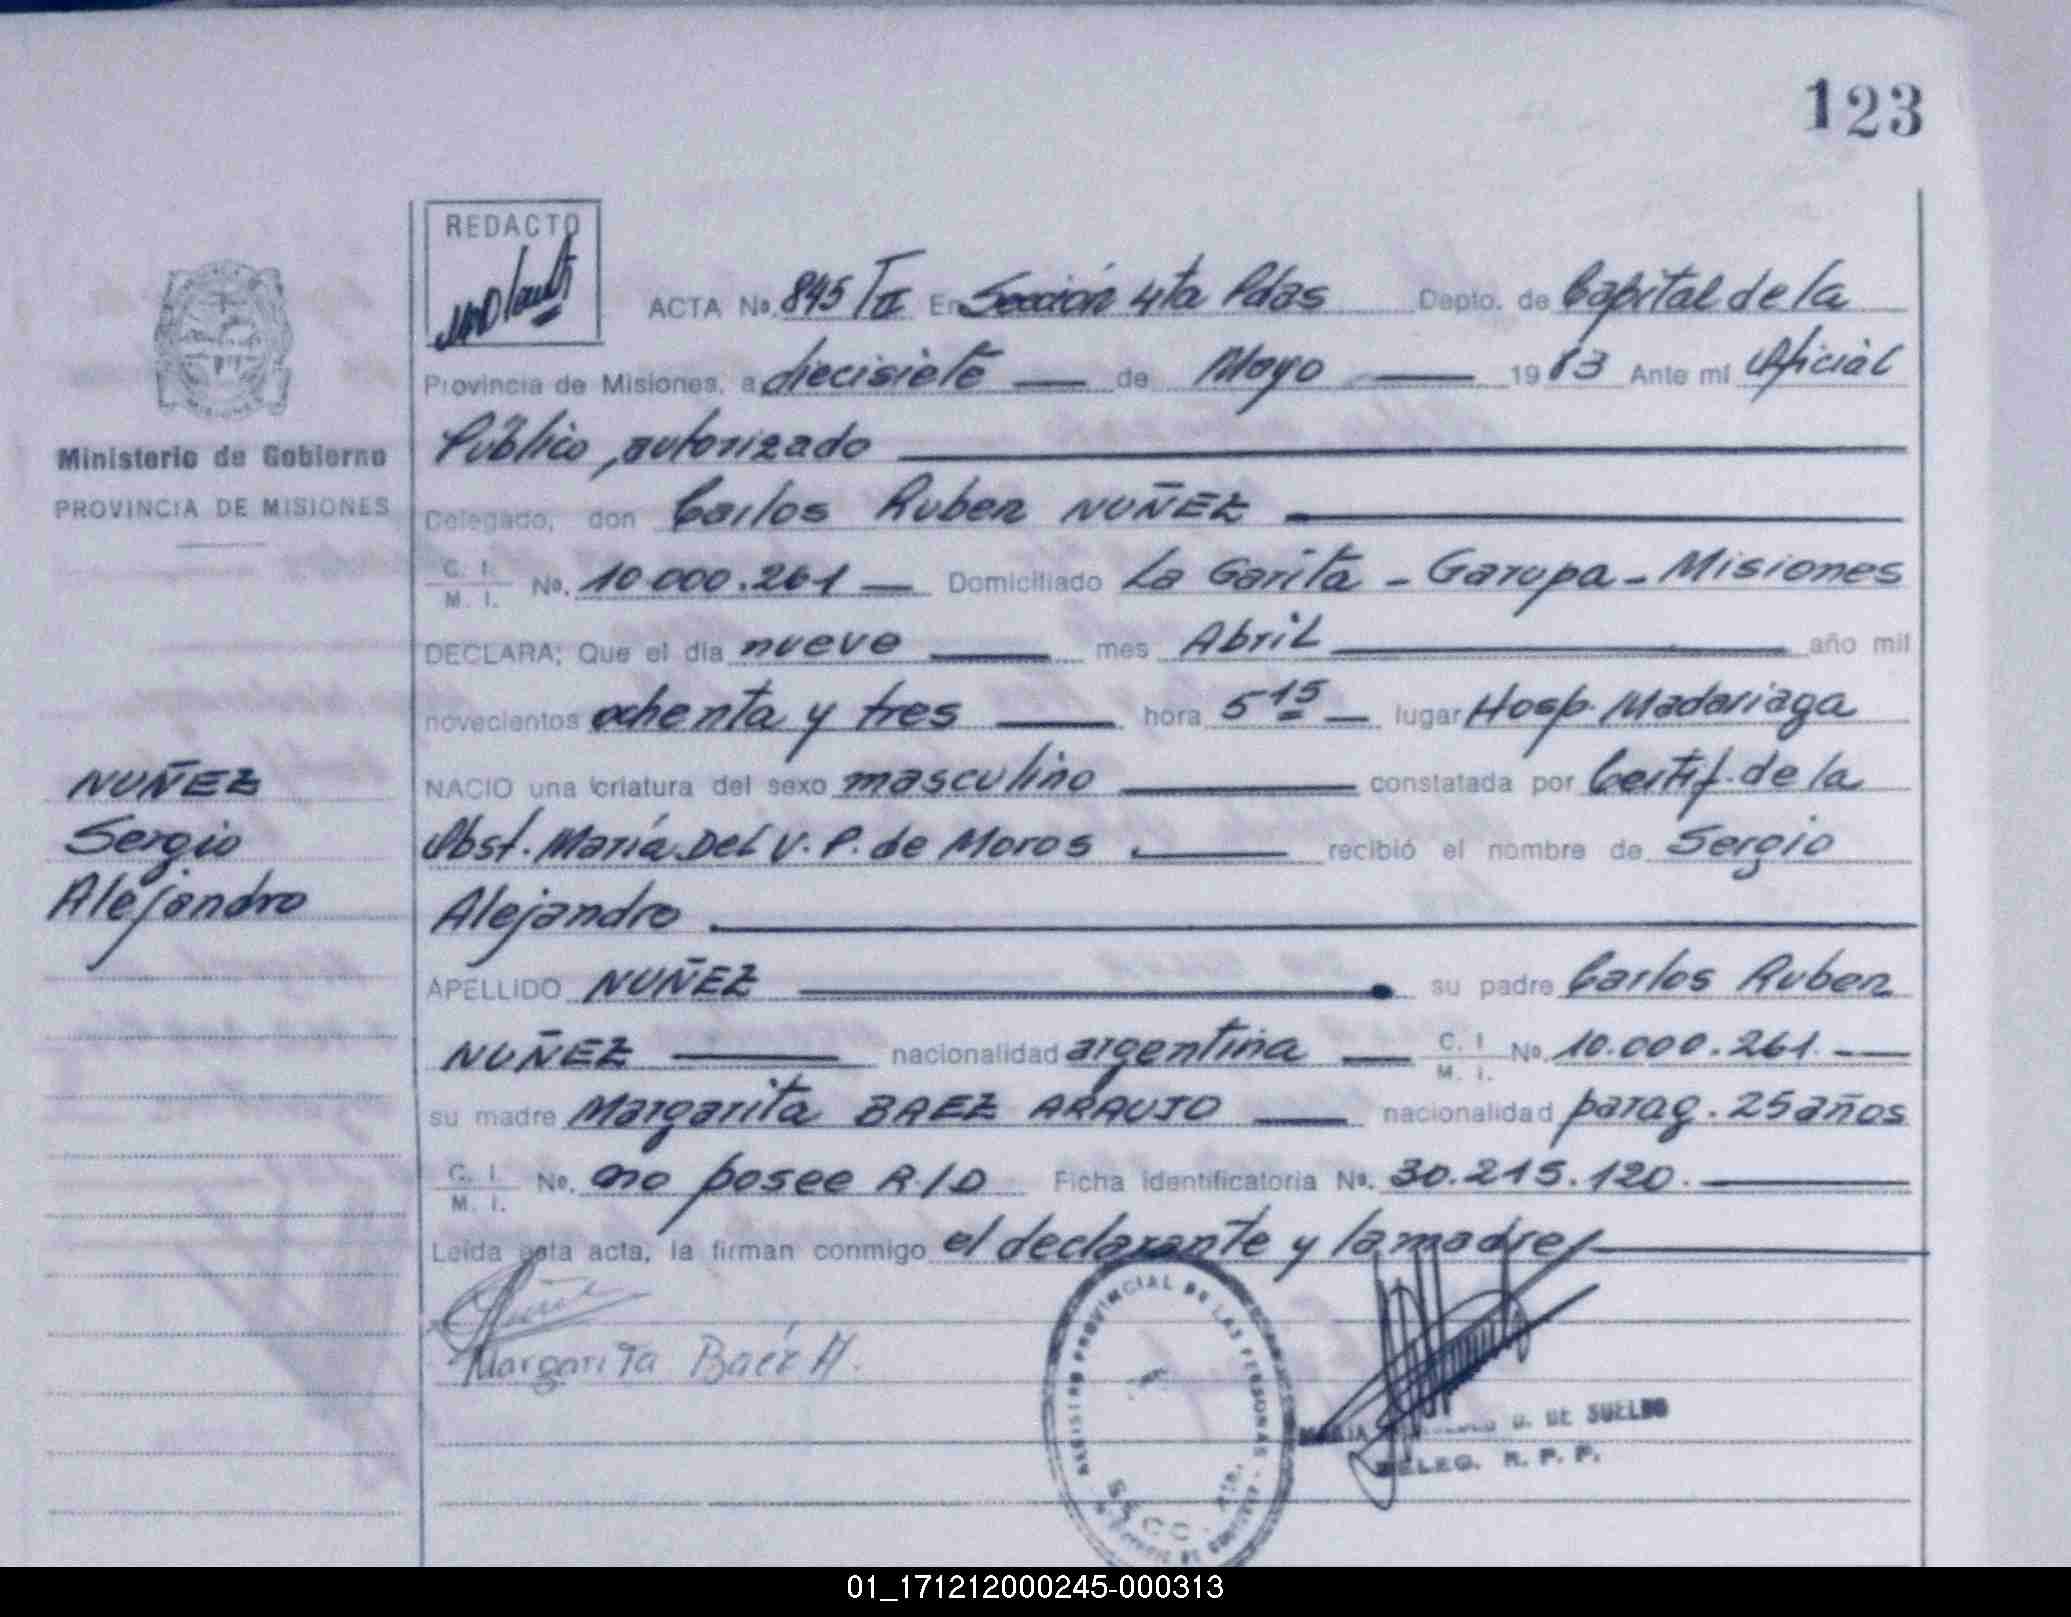 123
REDACTO
ACTA No. 845 T II En Sección 4ta Pdas Depto. de Capital de la
Provincia de Misiones, a diecisiete de Mayo 1983 Ante mí Oficial
Público, autorizado
Ministerio de Gobierno
PROVINCIA DE MISIONES
Delegado, don Carlos Ruben NUÑEZ
C. I.
M. I. No. 10.000.261 Domiciliado La Garita - Garupa - Misiones
DECLARA; Que el día nueve mes Abril año mil
novecientos ochenta y tres hora 5 15 lugar Hosp. Madariaga
NUÑEZ
Sergio
Alejandro
NACIO una criatura del sexo masculino constatada por Certif. de la
Obst. María Del V. P. de Moros recibió el nombre de Sergio
Alejandro
APELLIDO NUÑEZ su padre Carlos Ruben
NUÑEZ nacionalidad argentina C. I.
M. I. No. 10.000.261.
su madre Margarita BAEZ ARAUJO nacionalidad parag. 25 años
C. I.
M. I. No. no posee R/D Ficha identificatoria No. 30.215.120.
Leída esta acta, la firman conmigo el declarante y la madre
Margarita Baéz A.
REGISTRO PROVINCIAL DE LAS PERSONAS
SECC. 4ta.
MARIA D. DE SUELDO
DELEG. R. P. P.
01_171212000245-000313